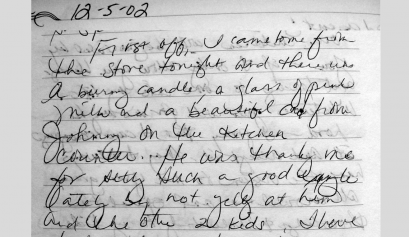 12-5-02
First off, I came home from
the store tonight and there was
a burning candle, a glass of pink
milk and a beautiful card from
Johnny on the kitchen
counter. He was thanking me
for setting such a good example
lately by not yelling at him
and the other 2 kids. I have